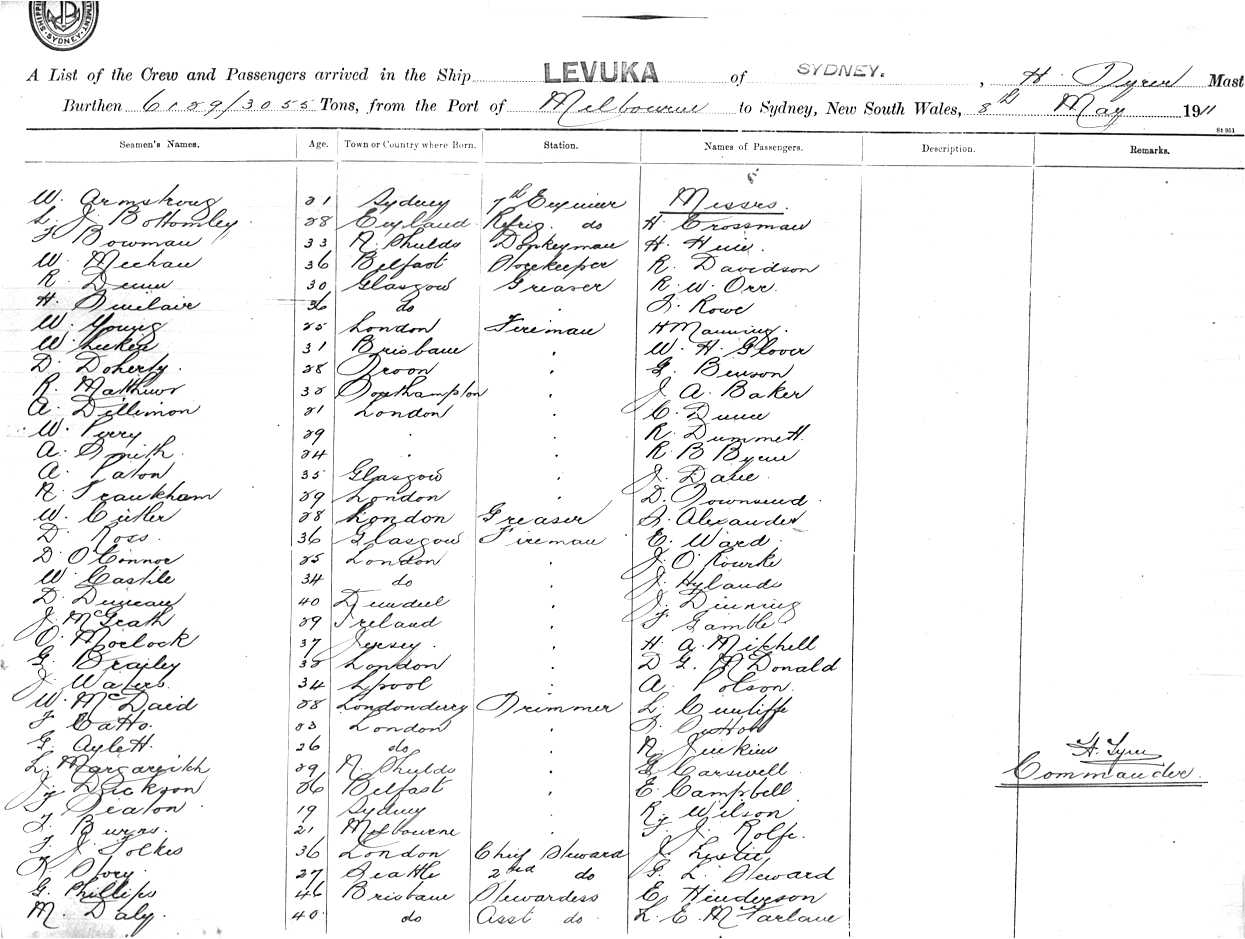 SYDNEY.
A List of the Crew and Passengers arrived in the Ship LEVUKA of SYDNEY. , H. Tyrer Mast
Burthen 6129/3055 Tons, from the Port of Melbourne to Sydney, New South Wales, 8th May 1911
St 951
Seamen's Names. Age. Town or Country where Born. Station. Names of Passengers. Description. Remarks.
W. Armstrong 21 Sydney 7th Engineer Messrs.
J. Bottomley 28 England Refrig. do H. Crossman
Bowman 33 N. Shields Donkeyman H. Huie
W. Meehan 36 Belfast Storekeeper R. Davidson
R. Dunn 30 Glasgow Greaser R. W. Orr
H. Sinclair 36 do " Rowe
W. Young 25 London Fireman H Manning.
W. 31 Brisbane " W. H. Glover
D. Doherty. 28 Troon " G. Benson
R. Matthews Southampton " J. A. Baker
A. Dillimon 21 London " C. Dunn
W. Perry 29 " " R. Dummett
A. Smith. 24 " " R B Byrne
A. Paton 35 Glasgow " J.
Frankham 29 London " D. Townsend.
W. Cutler 28 London Greaser S. Alexander
D. Ross. 36 Glasgow Fireman E. Ward.
D. O'Connor 25 London " J. O'Rourke
W. Castile 34 do " J. Hylands
D. Duncan 40 Dundee " J. Dinning
J. McGrath 29 Ireland " F Gamble
O. Morlock 37 Jersey. " H. A. Mitchell
G. Brayley London " D G. McDonald
J. Waters. 34 Lpool " A. Polson.
W. McDaid 28 Londonderry Trimmer L. Cunliffe
F Catto. 23 London "
G. Aylett. 26 do " N. Jenkins
L. Margareikh 29 N Shields " Carswell.
Dickson 26 Belfast " E. Campbell
Seaton 19 Sydney " R. Wilson
Burns. 21 Melbourne " J. Rolfe.
J. Folkes 36 London Chief Steward J. Leslie
Story. 27 Seattle 2nd do G. L. Steward
G. Phillips 46 Brisbane Stewardess E Henderson
M. Daly. 40 do Asst do. L. E. McFarlane
H. Tyrer
Commander.